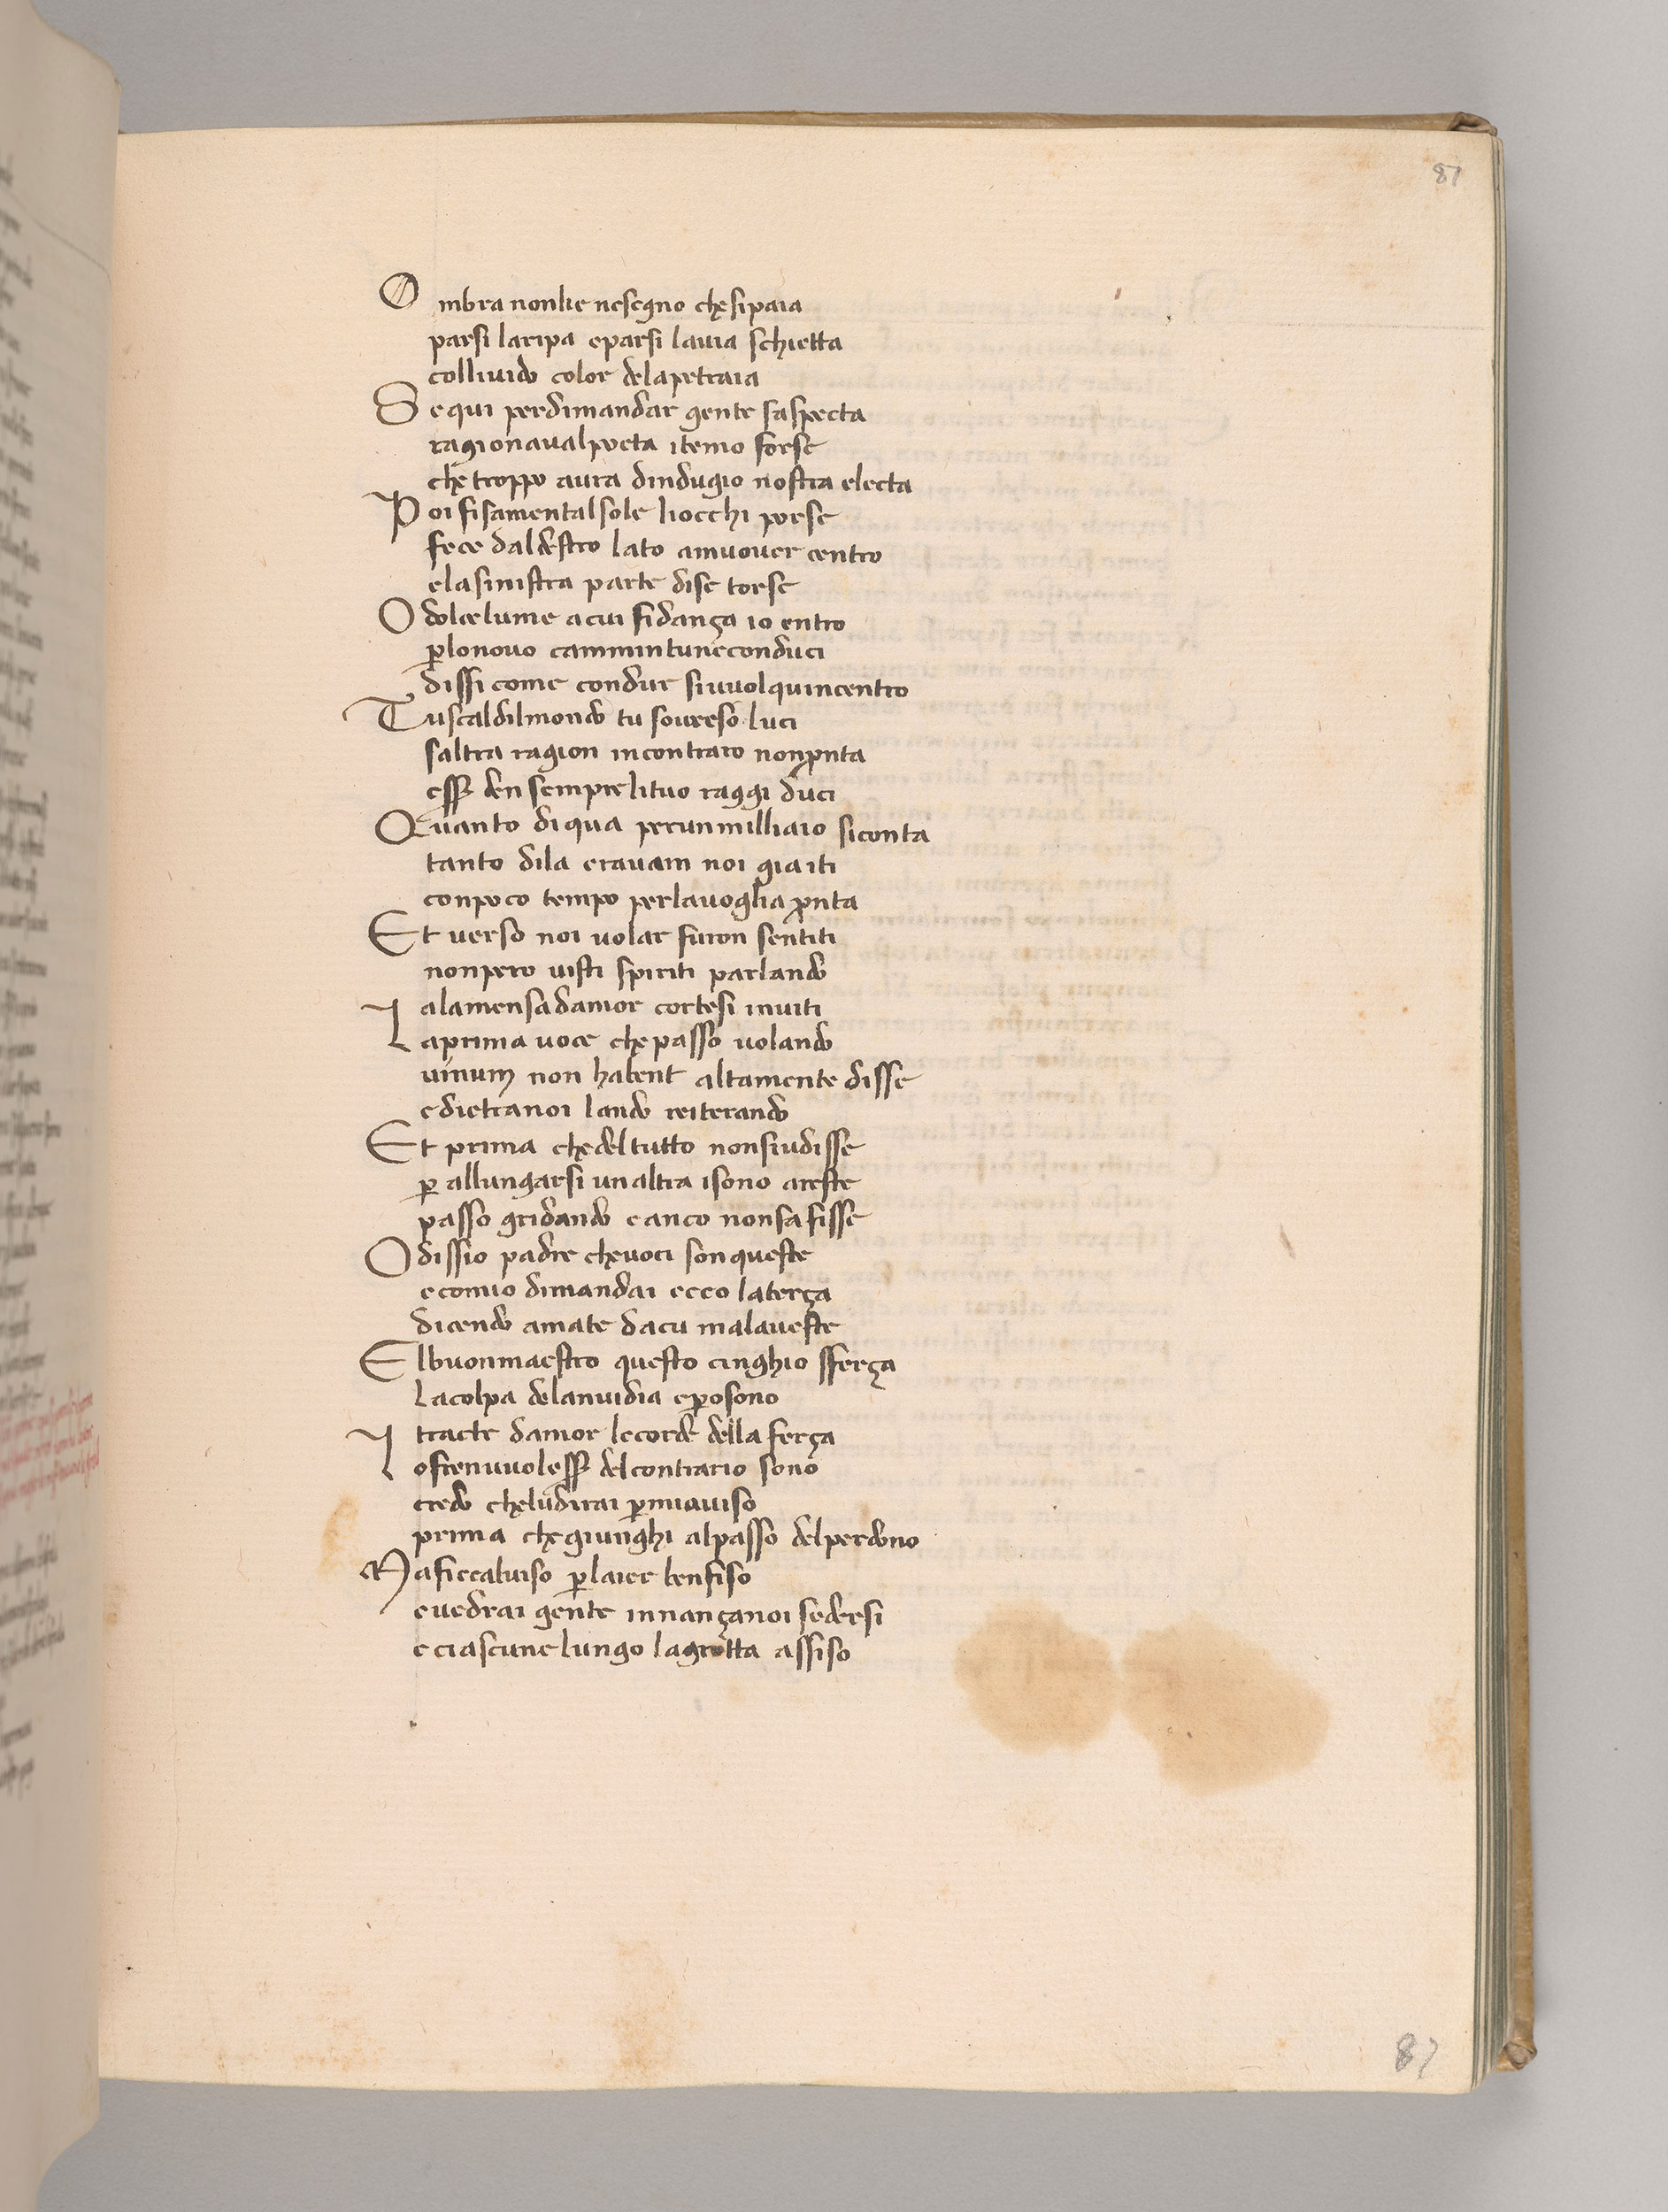 87
Ombra nonlie nesegno che sipaia
parsi laripa eparsi lauia schietta
colliuido color delapetraia
Sequi perdimandar gente saspecta
ragionaualpoeta itemo forse
che troppo aura dindugio nostra electa
Poi fisamental sole liocchi porse
fece daldestro lato amuouer centro
elasinistra parte dise torse
O dolce lume a cui fidança io entro
ꝑlonouo cammintuneconduci
dissi come condur siuuolquincentro
Tuscaldilmondo tu souresso luci
saltra ragion incontraro nonpnta
esser den semprelituo raggi duci
Quanto diqua perunmilliaio siconta
tanto dila erauam noi giaiti
conpoco tempo perlauoglia pnta
Et uerso noi uolar furon sentiti
nonpero uisti spiriti parlando
alamensadamor cortesi inuiti
Laprima uoce chepasso uolando
uinum non habent altamente disse
edietranoi lando reiterando
Et prima chedeltutto nonsiudisse
ꝑ allungarsi unaltra isono areste
passo gridando eanco nonsafisse
O dissio padre cheuoci sonqueste
ecomio dimandai ecco laterça
dicendo amate dacu malaueste
Elbuonmaestro questo cinghio sferça
Lacolpa delanuidia eꝑosono
tracte damor lecorde della ferça
Lofrenuuolesser delcontrario sono
credo cheludirai ꝑmiauiso
prima chegiunghi alpasso delperdono
Maficcaluiso ꝑlaier benfiso
euedrai gente innançanoi sedersi
eciascunelungo lagrotta assiso
87